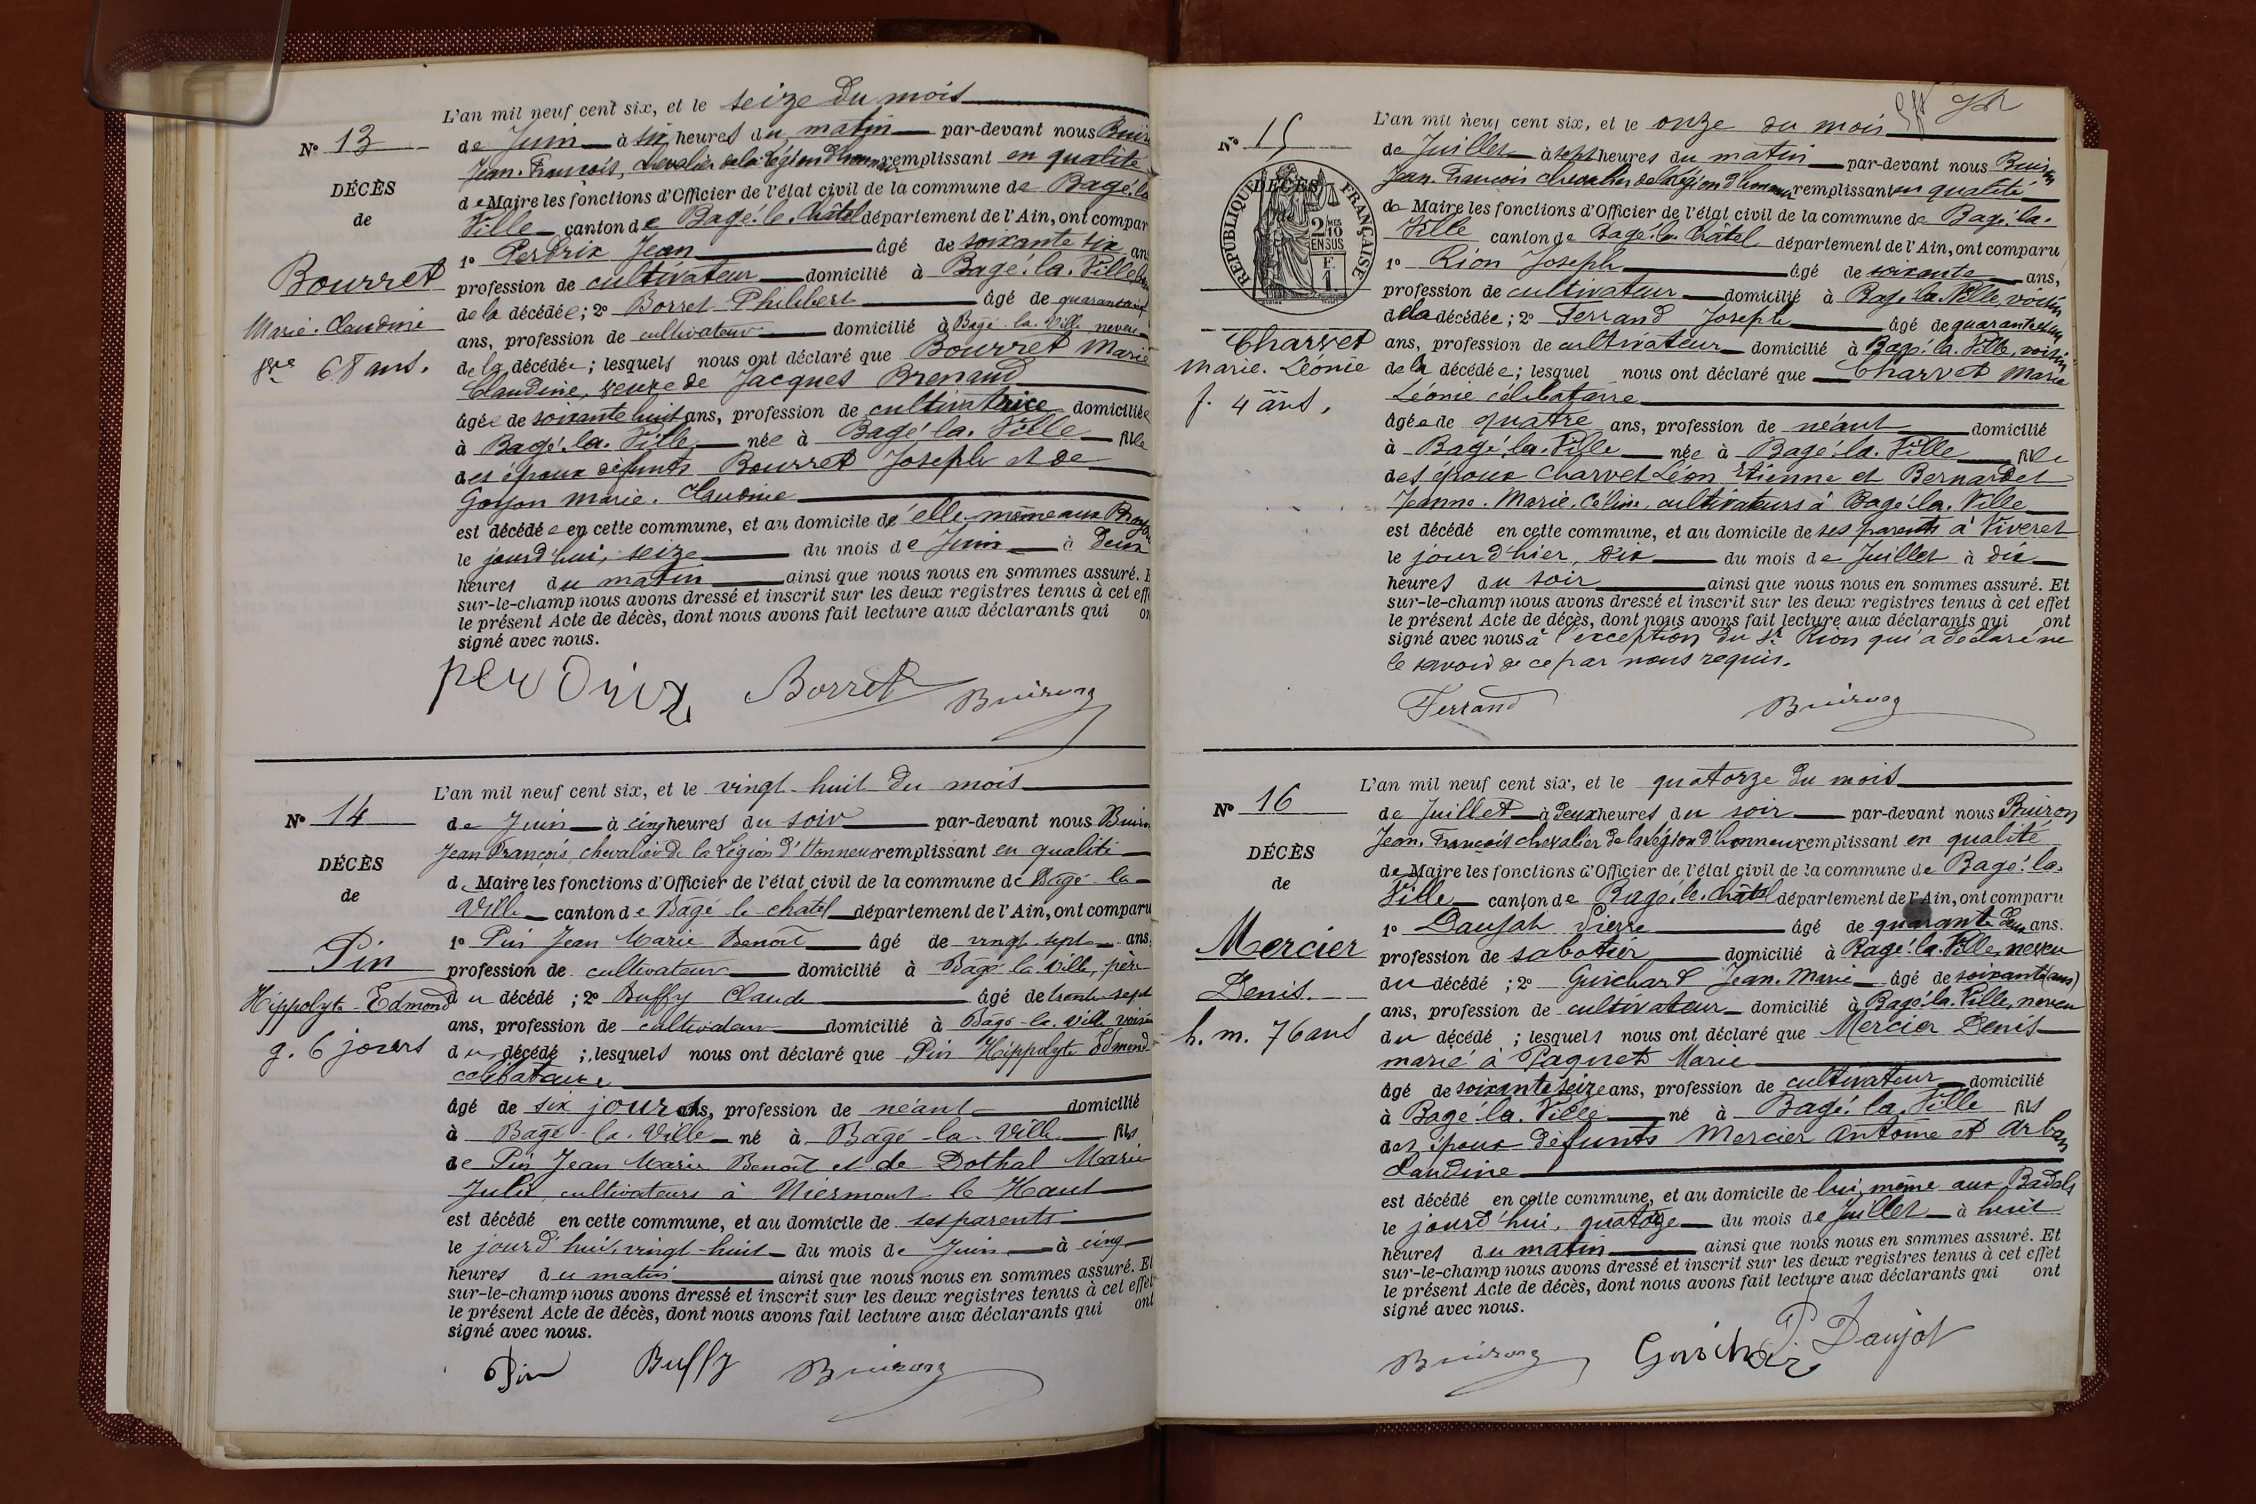 L'an mil neuf cent six, et le seize du mois
N° 13
de Juin à six heures du matin par-devant nous Buir
Jean-François, chevalier de la Légion d'honneur remplissant en qualité
DÉCÈS
de Maire les fonctions d'Officier de l'état civil de la commune de Bagé-la
de
Ville canton de Bagé-le-Châtel département de l'Ain, ont compar
1° Perdrix Jean âgé de soixante six ans
Bourret
profession de cultivateur domicilié à Bagé-la-Ville
de la décédée; 2° Borret Philibert âgé de
Marie-Claudine
ans, profession de cultivateur domicilié à Bagé-la-Ville neveu
68 ans.
de la décédée; lesquels nous ont déclaré que Bourret Marie
Claudine, veuve de Jacques Brenaud
âgée de soixante huit ans, profession de cultivatrice domiciliée
à Bagé-la-Ville née à Bagé-la-Ville fille
des époux défunts Bourret Joseph et de
Goyon Marie-Claudine
est décédée en cette commune, et au domicile d'elle-même aux
le jourd'hui, seize du mois de Juin à deux
heures du matin ainsi que nous nous en sommes assuré. E
sur-le-champ nous avons dressé et inscrit sur les deux registres tenus à cet eff
le présent Acte de décès, dont nous avons fait lecture aux déclarants qui on
signé avec nous.
perdrix Borret Buiron
L'an mil neuf cent six, et le vingt-huit du mois
N° 14
de Juin à cinq heures du soir par-devant nous Buiron
Jean François, chevalier de la Légion d'Honneur remplissant en qualité
DÉCÈS
de Maire les fonctions d'Officier de l'état civil de la commune de Bâgé-la-
de
Ville canton de Bâgé-le-chatel département de l'Ain, ont comparu
1° Pin Jean Marie Benoît âgé de vingt-sept ans,
Pin
profession de cultivateur domicilié à Bâgé-la-Ville, père
Hippolyte-Edmond
du décédé; 2° Buffy Claude âgé de trente-sept
ans, profession de cultivateur domicilié à Bâgé-la-Ville voisin
g. 6 jours
du décédé; lesquels nous ont déclaré que Pin Hippolyte Edmond
célibataire
âgé de six jours ans, profession de néant domicilié
à Bâgé-la-Ville né à Bâgé-la-Ville fils
de Pin Jean Marie Benoît et de Dothal Marie
Julie, cultivateurs à Niermont-le-Haut
est décédé en cette commune, et au domicile de ses parents
le jourd'hui, vingt-huit du mois de Juin à cinq
heures du matin ainsi que nous nous en sommes assuré. Et
sur-le-champ nous avons dressé et inscrit sur les deux registres tenus à cet effet
le présent Acte de décès, dont nous avons fait lecture aux déclarants qui ont
signé avec nous.
Pin Buffy Buiron
L'an mil neuf cent six, et le onze du mois
N° 15
de Juillet à sept heures du matin par-devant nous Buiron
Jean-François chevalier de la légion d'honneur remplissant en qualité
DÉCÈS
de
RÉPUBLIQUE FRANÇAISE
2/10 EN SUS
F. 1
de Maire les fonctions d'Officier de l'état civil de la commune de Bagé-la-
Ville canton de Bagé-le-Châtel département de l'Ain, ont comparu
1° Rion Joseph âgé de soixante ans,
profession de cultivateur domicilié à Bagé-la-Ville, voisin
de la décédée; 2° Ferrand Joseph âgé de
Charvet
ans, profession de cultivateur domicilié à Bagé-la-Ville, voisin
Marie-Léonie
de la décédée; lesquel nous ont déclaré que Charvet Marie
f. 4 ans.
Léonie célibataire
âgée de quatre ans, profession de néant domicilié
à Bagé-la-Ville née à Bagé-la-Ville fille
des époux Charvet Léon Etienne et Bernardet
Jeanne-Marie-Céline, cultivateurs à Bagé-la-Ville
est décédé en cette commune, et au domicile de ses parents à Viveret
le jour d'hier, dix du mois de Juillet à dix
heures du soir ainsi que nous nous en sommes assuré. Et
sur-le-champ nous avons dressé et inscrit sur les deux registres tenus à cet effet
le présent Acte de décès, dont nous avons fait lecture aux déclarants qui ont
signé avec nous à l'exception du Sr Rion qui a déclaré ne
le savoir de ce par nous requis.
Ferrand Buiron
L'an mil neuf cent six, et le quatorze du mois
N° 16
de Juillet à deux heures du soir par-devant nous Buiron
Jean-François chevalier de la légion d'honneur remplissant en qualité
DÉCÈS
de Maire les fonctions d'Officier de l'état civil de la commune de Bagé-la-
de
Ville canton de Bagé-le-Châtel département de l'Ain, ont comparu
1° Daujat Pierre âgé de quarante deux ans.
Mercier
profession de sabotier domicilié à Bagé-la-Ville, neveu
Denis.
du décédé; 2° Guichard Jean-Marie âgé de soixante (ans)
ans, profession de cultivateur domicilié à Bagé-la-Ville, neveu
h. m. 76 ans
du décédé; lesquels nous ont déclaré que Mercier Denis
marié à Paquet Marie
âgé de soixante seize ans, profession de cultivateur domicilié
à Bagé-la-Ville né à Bagé-la-Ville fils
des époux défunts Mercier Antoine et Arban
Claudine
est décédé en cette commune, et au domicile de lui-même aux Badals
le jourd'hui, quatorze du mois de Juillet à huit
heures du matin ainsi que nous nous en sommes assuré. Et
sur-le-champ nous avons dressé et inscrit sur les deux registres tenus à cet effet
le présent Acte de décès, dont nous avons fait lecture aux déclarants qui ont
signé avec nous.
Buiron Guichard P. Daujat